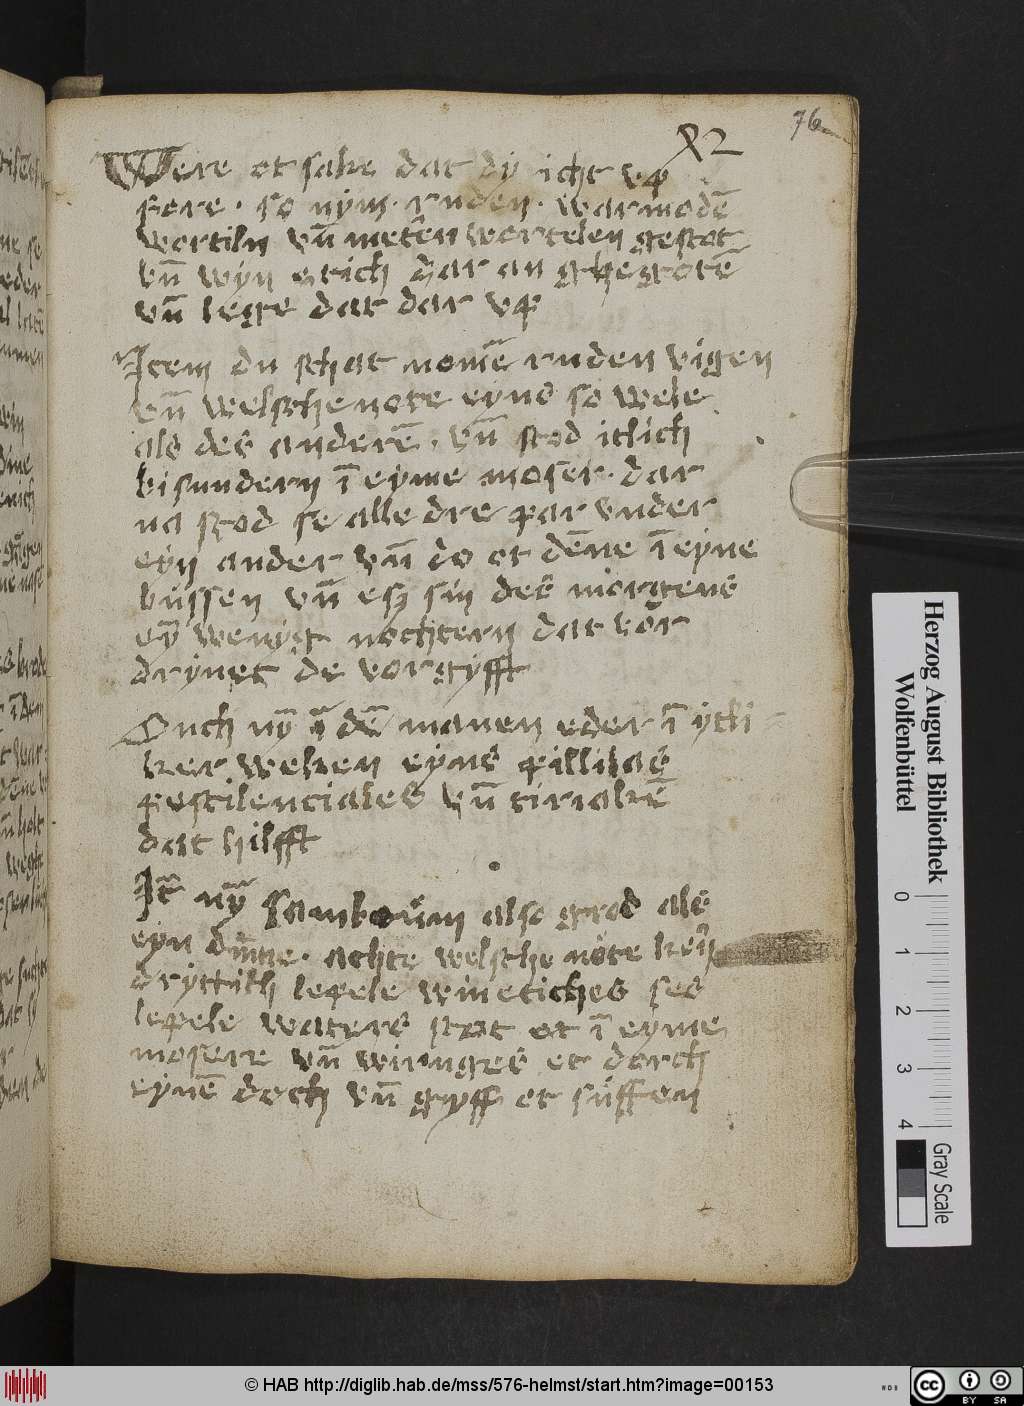 76
Were et sake dat dy icht vp
fore · so nym · ruden · warmodē
wortiln vn̄ meten wortelen gestot
vn̄ wyn etich dar an ghegotē
vn̄ lege dat dar vp
Item du schat nomē ruden vigen
vn̄ welsche note eyns so wele
als des anderē · vn̄ stod itlich
bisundern ī eyme moser · dar
na stod se alle dre par vnder
eyn ander vn̄ do et dēne ī eyne
bussen vn̄ esz sin des morgens
eȳ wenig nochtern dat vor
drynet de vorgyfft
Ouch nȳ ī dē manen eder ī itli
ker weken eyns pillulas
pestilenciales vn̄ tiriakē
dat hilfft
It nȳ also grod als
eyn achte welsche note
lepele winetiches ses
lepele waters stot et ī eyme
mosere vn̄ wringes et dorch
eynē doch vn̄ gyff et suffen
Herzog August Bibliothek
Wolfenbüttel
0 1 2 3 4
Gray Scale
© HAB http://diglib.hab.de/mss/576-helmst/start.htm?image=00153
WDB
cc BY SA